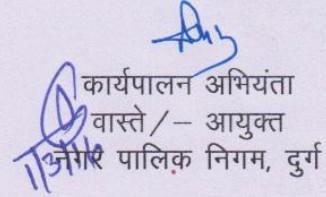 कार्यपालन अभियंता
वास्ते/– आयुक्त
नगर पालिक निगम, दुर्ग